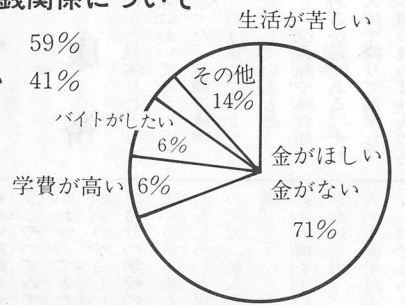 銭関係について
59%
41%
生活が苦しい
その他
14%
バイトがしたい
6%
学費が高い
6%
金がほしい
金がない
71%